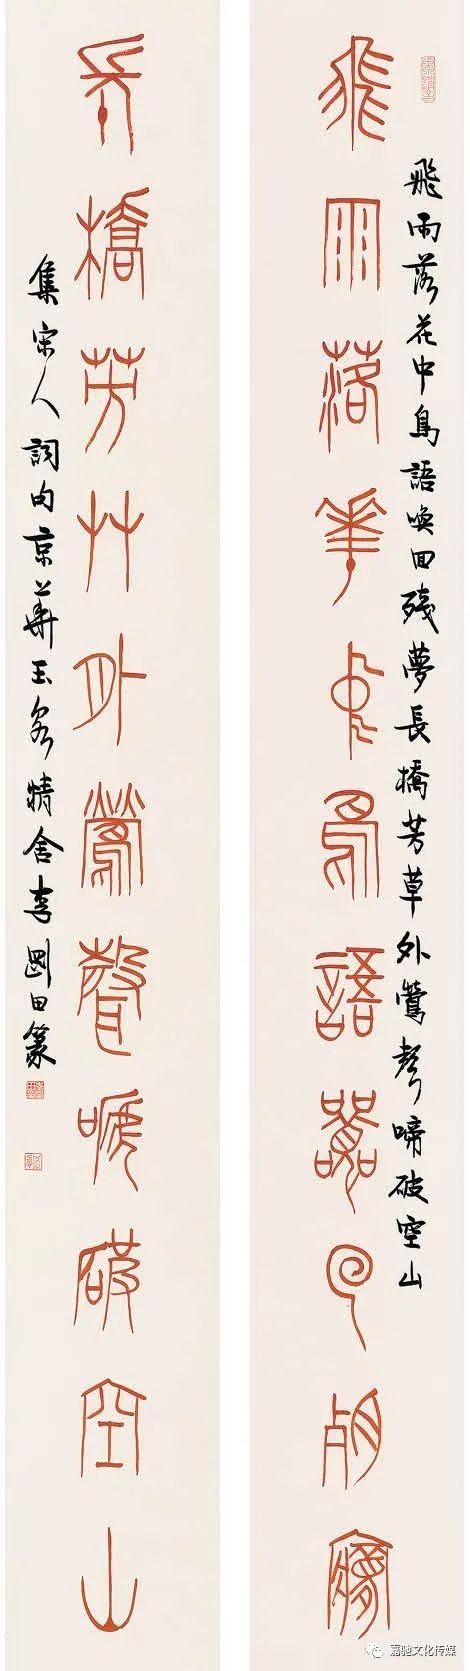 飛雨落華中鳥語喚回殘夢
飛雨落花中鳥語喚回殘夢長橋芳草外鶯聲啼破空山
長橋芳艸外鶯聲嗁破空山
集宋人詞句京華玉客精舍李剛田篆
嘉驰文化传媒